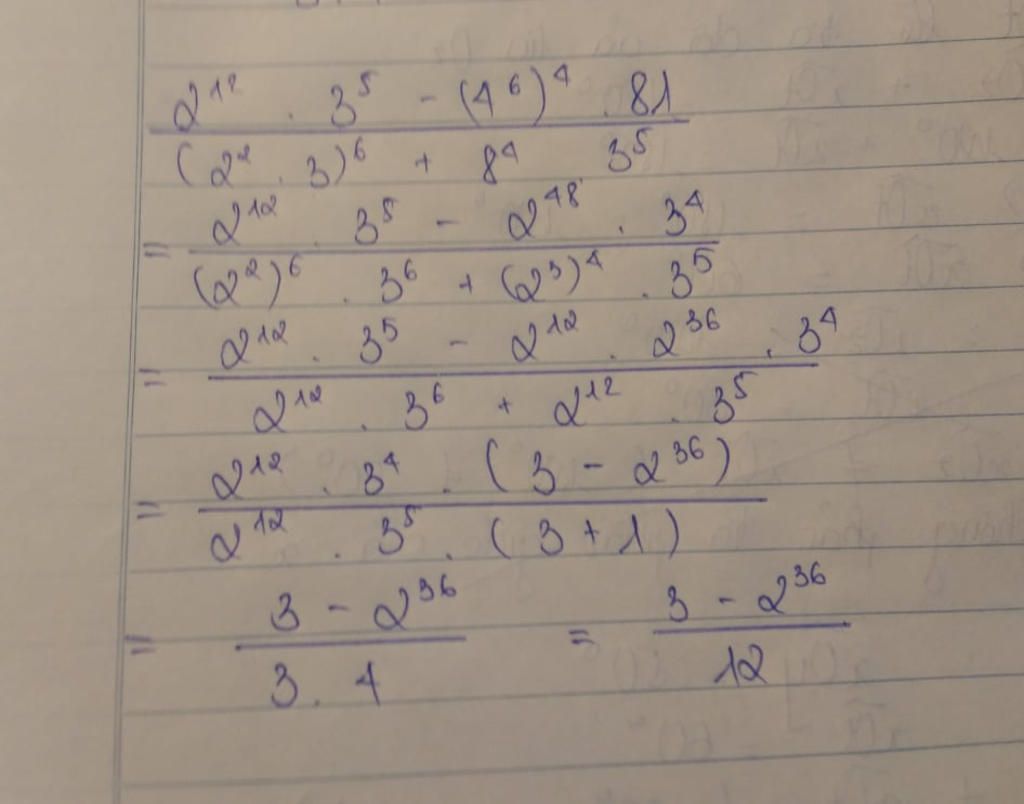 2^12 . 3^5 - (4^6)^4 . 81
(2^2 . 3)^6 + 8^4 3^5
= 2^12 . 3^5 - 2^48 . 3^4
(2^2)^6 . 3^6 + (2^3)^4 . 3^5
= 2^12 . 3^5 - 2^12 . 2^36 . 3^4
2^12 . 3^6 + 2^12 . 3^5
= 2^12 . 3^4 . (3 - 2^36)
2^12 . 3^5 . (3 + 1)
= 3 - 2^36 = 3 - 2^36
3 . 4 12